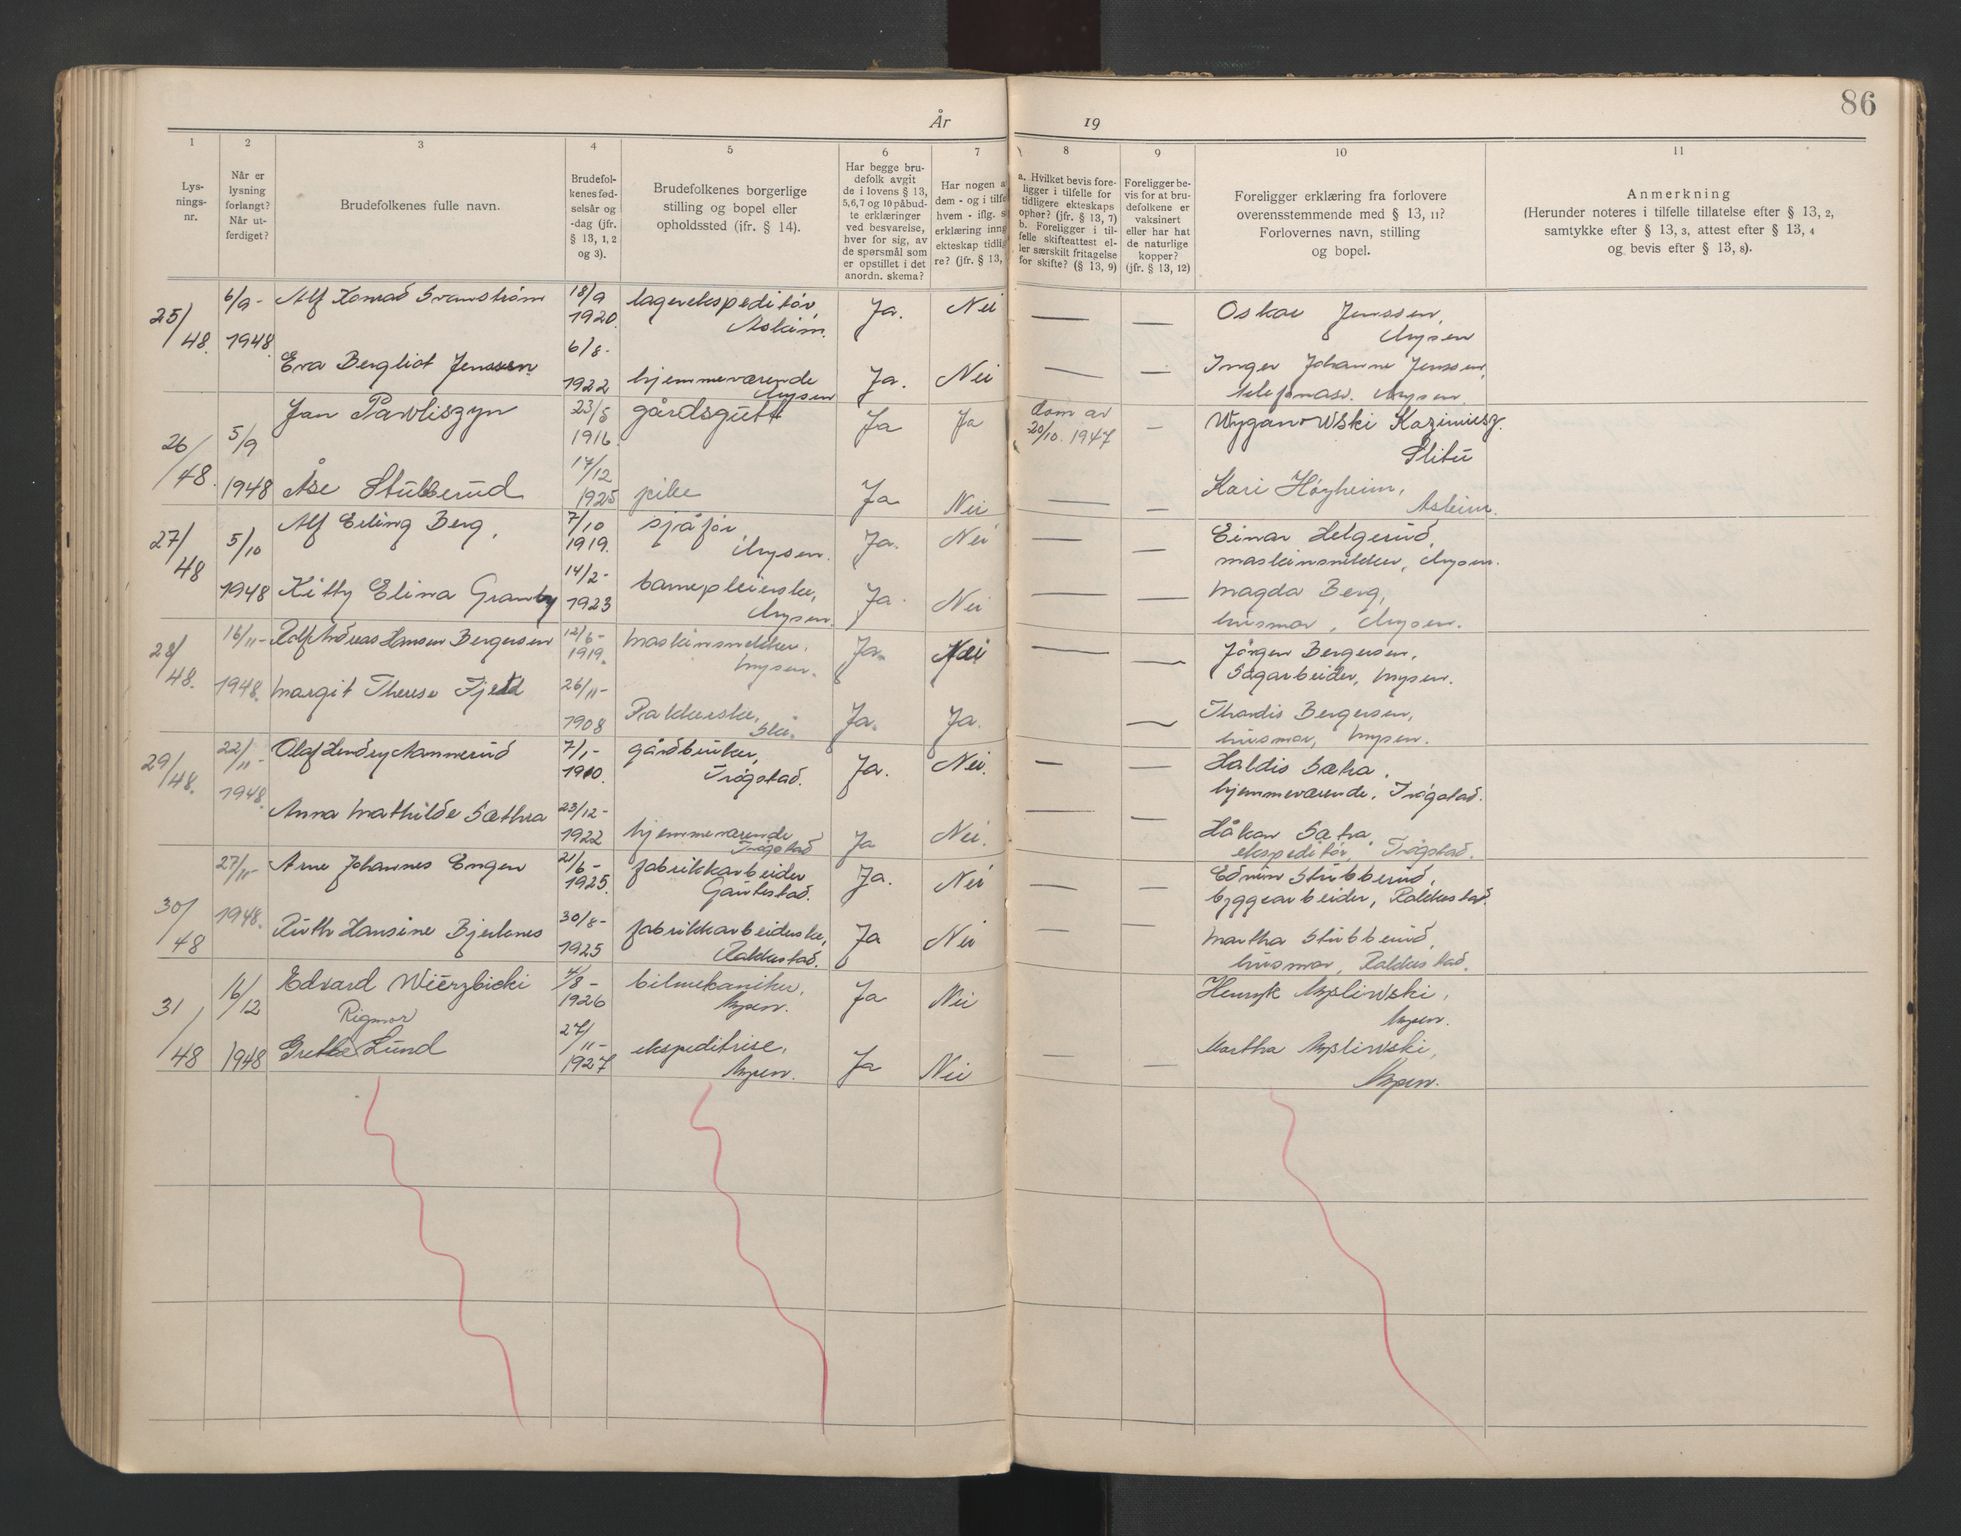 86
År 19
1 2 3 4 5 6 7 8 9 10 11
Lys-
nings-
nr.
Når er
lysning
forlangt?
Når ut-
ferdiget?
Brudefolkenes fulle navn.
Brudefol-
kenes fød-
selsår og
-dag (jfr.
§ 13, 1, 2
og 3).
Brudefolkenes borgerlige
stilling og bopel eller
opholdssted (ifr. § 14).
Har begge bru-
defolk avgit
de i lovens § 13,
5,6,7 og 10 påbud-
te erklæringer
ved besvarelse,
hver for sig, av
de spørsmål som
er opstillet i det
anordn. skema?
Har nogen a
dem - og i tilfe
hvem - iflg. s
erklæring inng
ekteskap tidlig
re? (jfr. § 13,
a. Hvilket bevis fore-
ligger i tilfelle for
tidligere ekteskaps
ophør? (jfr. § 13, 7)
b. Foreligger i til-
felle skifteattest el-
ler særskilt fritagelse
for skifte? (§ 13, 9)
Foreligger be-
vis for at bru-
defolkene er
vaksinert
eller har hat
de naturlige
kopper?
(jfr. § 13, 12)
Foreligger erklæring fra forlovere
overensstemmende med § 13, 11?
Forlovernes navn, stilling
og bopel.
Anmerkning
(Herunder noteres i tilfelle tillatelse efter § 13, 2,
samtykke efter § 13, 3, attest efter § 13, 4
og bevis efter § 13, 8).
25/48. 6/9- 1948. Alf Konrad Svanström 18/9 1920. lagerekspeditør, Ja. Nei — — Oskar Jenssen,
Askim. Mysen
Eva Bergliot Jenssen 6/8- 1922 hjemmeværende Ja. Nei — — Inger Johanne Jenssen,
Mysen telefonass. Mysen.
26/48. 5/9 1948 Jan Pavliszyn 23/5 1916. gårdsgutt Ja Ja dom av 20/10. 1947 — Wyganowski Kazimiesz.
Slitu
Åse Stubberud 17/12 1925 pike Ja Nei — — Kari Høyheim,
Askim.
27/48 5/10 1948 Alf Erling Berg, 7/10 1919. sjåfør Ja. Nei — — Einar Helgerud,
Mysen. maskinsnekker, Mysen.
Kitty Elina Granby 14/2- 1923 barnepleierske, Ja. Nei — — Magda Berg,
Mysen. husmor, Mysen.
28/48. 16/11- 1948. Rolf Andreas Hansen Bergersen 12/6- 1919. Maskinsnekker, Ja. Nei — — Jörgen Bergersen,
Mysen. Sagarbeider, Mysen.
Margit Therese Fjeld 26/11- 1908 Pakkerske, Ja. Ja. — Thordis Bergersen,
Ski. husmor, Mysen.
29/48. 22/11- 1948. Olaf Hendry Nannerud 7/1- 1910. gårdbruker, Ja. Nei. — — Haldis Sætra.
Trögstad. hjemmeværende, Trögstad.
Anna Mathilde Sæthra 23/12- 1922 hjemmeværende Ja Nei. — — Håkon Sætra
Trögstad ekspeditör, Trögstad.
30/48 27/11- 1948. Arne Johannes Engen 21/6- 1925. fabrikkarbeider Ja. Nei — — Edvin Stubberud,
Gautestad. byggearbeider, Rakkestad.
Ruth Hansine Bjerknes 30/8- 1925 fabrikkarbeiderske, Ja Nei — — Martha Stubberud,
Rakkestad. husmor, Rakkestad.
31/48 16/12 1948 Edvard Wierzbicki 4/8- 1926 bilmekaniker, Ja Nei Henryk Myslivski,
Mysen. Mysen.
Rigmor
Grethe Lund 27/11- 1927 ekspeditrise, Ja Nei — — Martha Myslivski,
Mysen. Mysen.